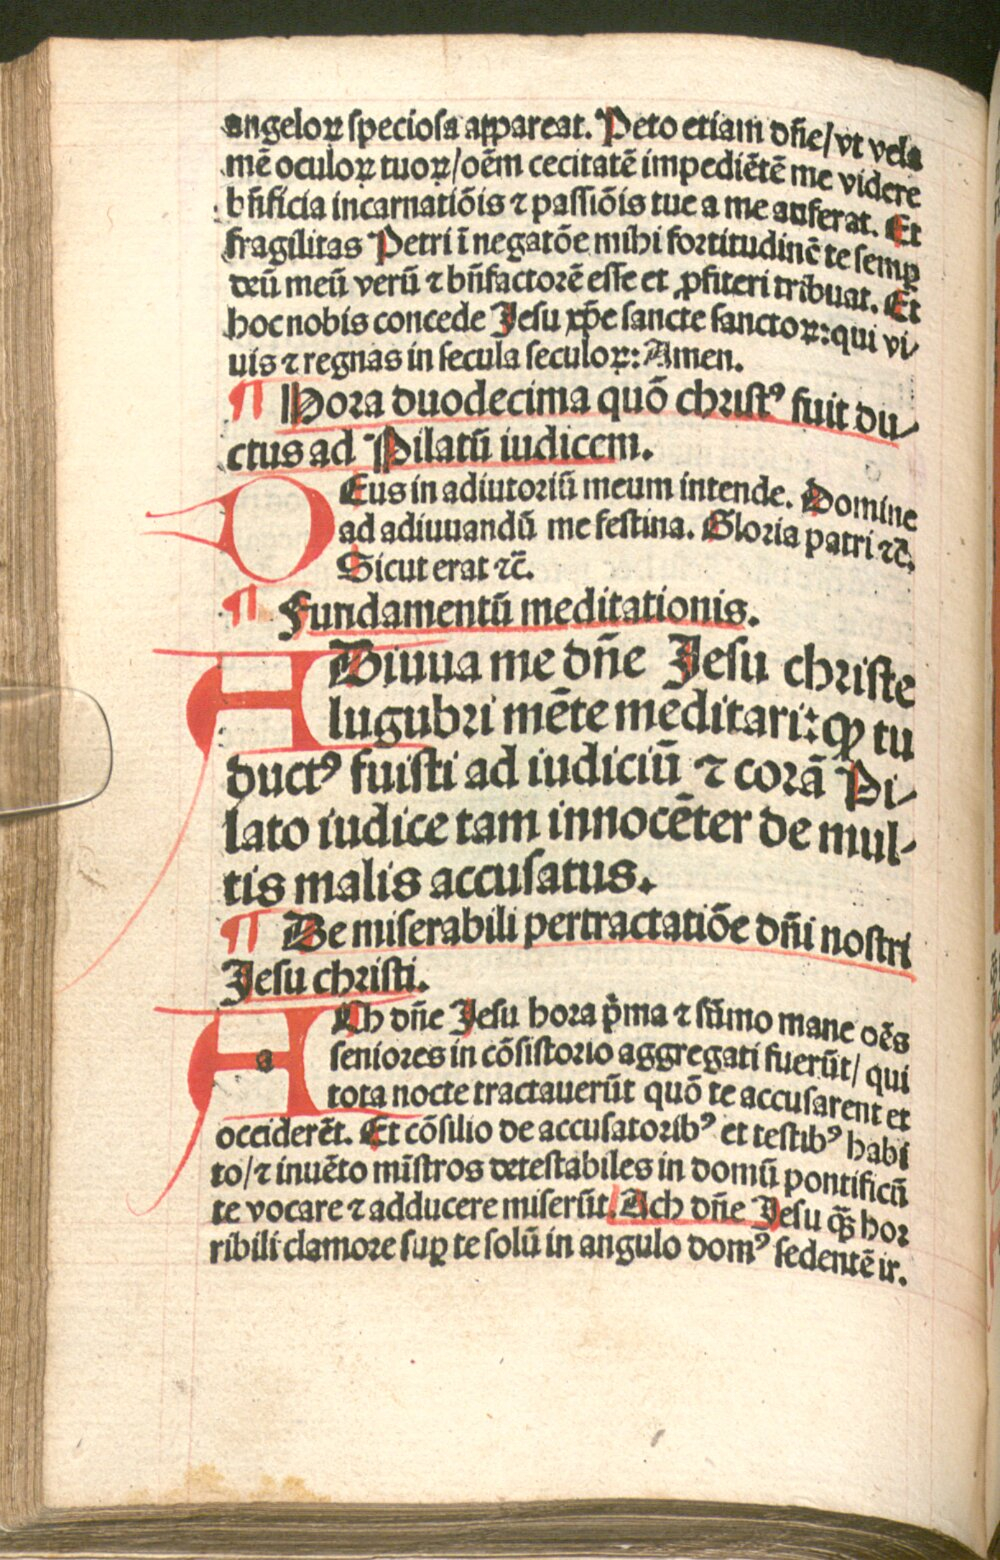 angeloꝝ speciosa appareat. Peto etiam dñe/ vt vela
mē oculoꝝ tuoꝝ/ oēm cecitatē impediētē me videre
bñficia incarnatiōis ⁊ passiōis tue a me auferat. Et
fragilitas Petri ī negatōe mihi fortitudinē te semꝑ
deū meū verū ⁊ bñfactorē esse et ꝓfiteri tribuat. Et
hoc nobis concede Jesu xp̄e sancte sanctoꝝ: qui vi/
uis ⁊ regnas in secula seculoꝝ: Amen.
¶ Hora duodecima quō christꝰ fuit du/
ctus ad Pilatū iudicem.
DEus in adiutoriū meum intende. Domine
ad adiuuandū me festina. Gloria patri ⁊c̄.
Sicut erat ⁊c̄.
¶ Fundamentū meditationis.
ADiuua me dñe Jesu christe
lugubri mēte meditari: ꝙ tu
ductꝰ fuisti ad iudiciū ⁊ corā Pi/
lato iudice tam innocēter de mul/
tis malis accusatus.
¶ De miserabili pertractatiōe dñi nostri
Jesu christi.
ACh dñe Jesu hora p̾ma ⁊ sūmo mane oēs
seniores in cōsistorio aggregati fuerūt/ qui
tota nocte tractauerūt quō te accusarent et
occiderēt. Et cōsilio de accusatoribꝰ et testibꝰ habi
to/ ⁊ inuēto mīstros detestabiles in domū pontificū
te vocare ⁊ adducere miserūt. Ach dñe Jesu q̄ꝫ hor
ribili clamore suꝑ te solū in angulo domꝰ sedentē ir.